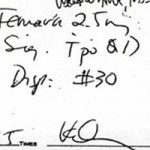 Femara 2.5mg
Sig. T po QD
Disp: #30
TIMES